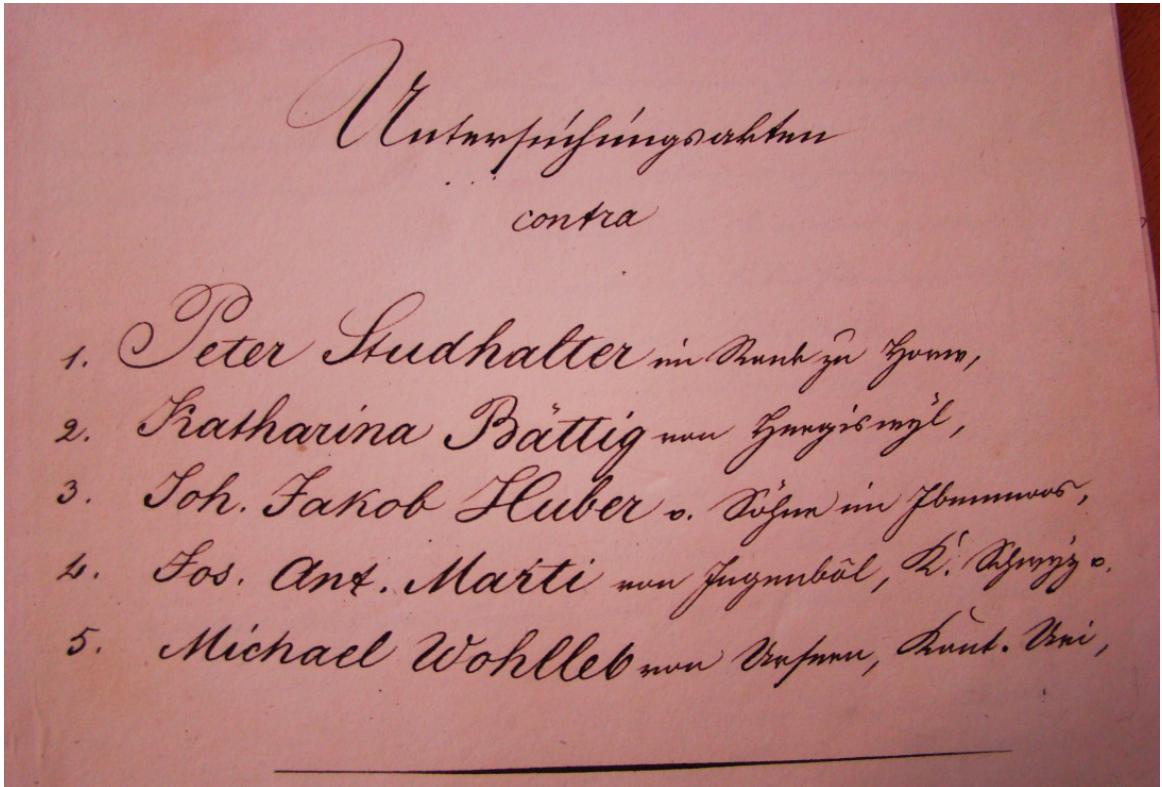 Untersuchungsakten
contra
1. Peter Studhalter im Rank zu Horw,
2. Katharina Bättig von Hergiswÿl,
3. Joh. Jakob Huber v. Söhne im Ibenmoos,
4. Jos. Ant. Marti von Ingenböl, K. Schwÿz v.
5. Michael Wohlleb von Ursern, Kant. Uri,